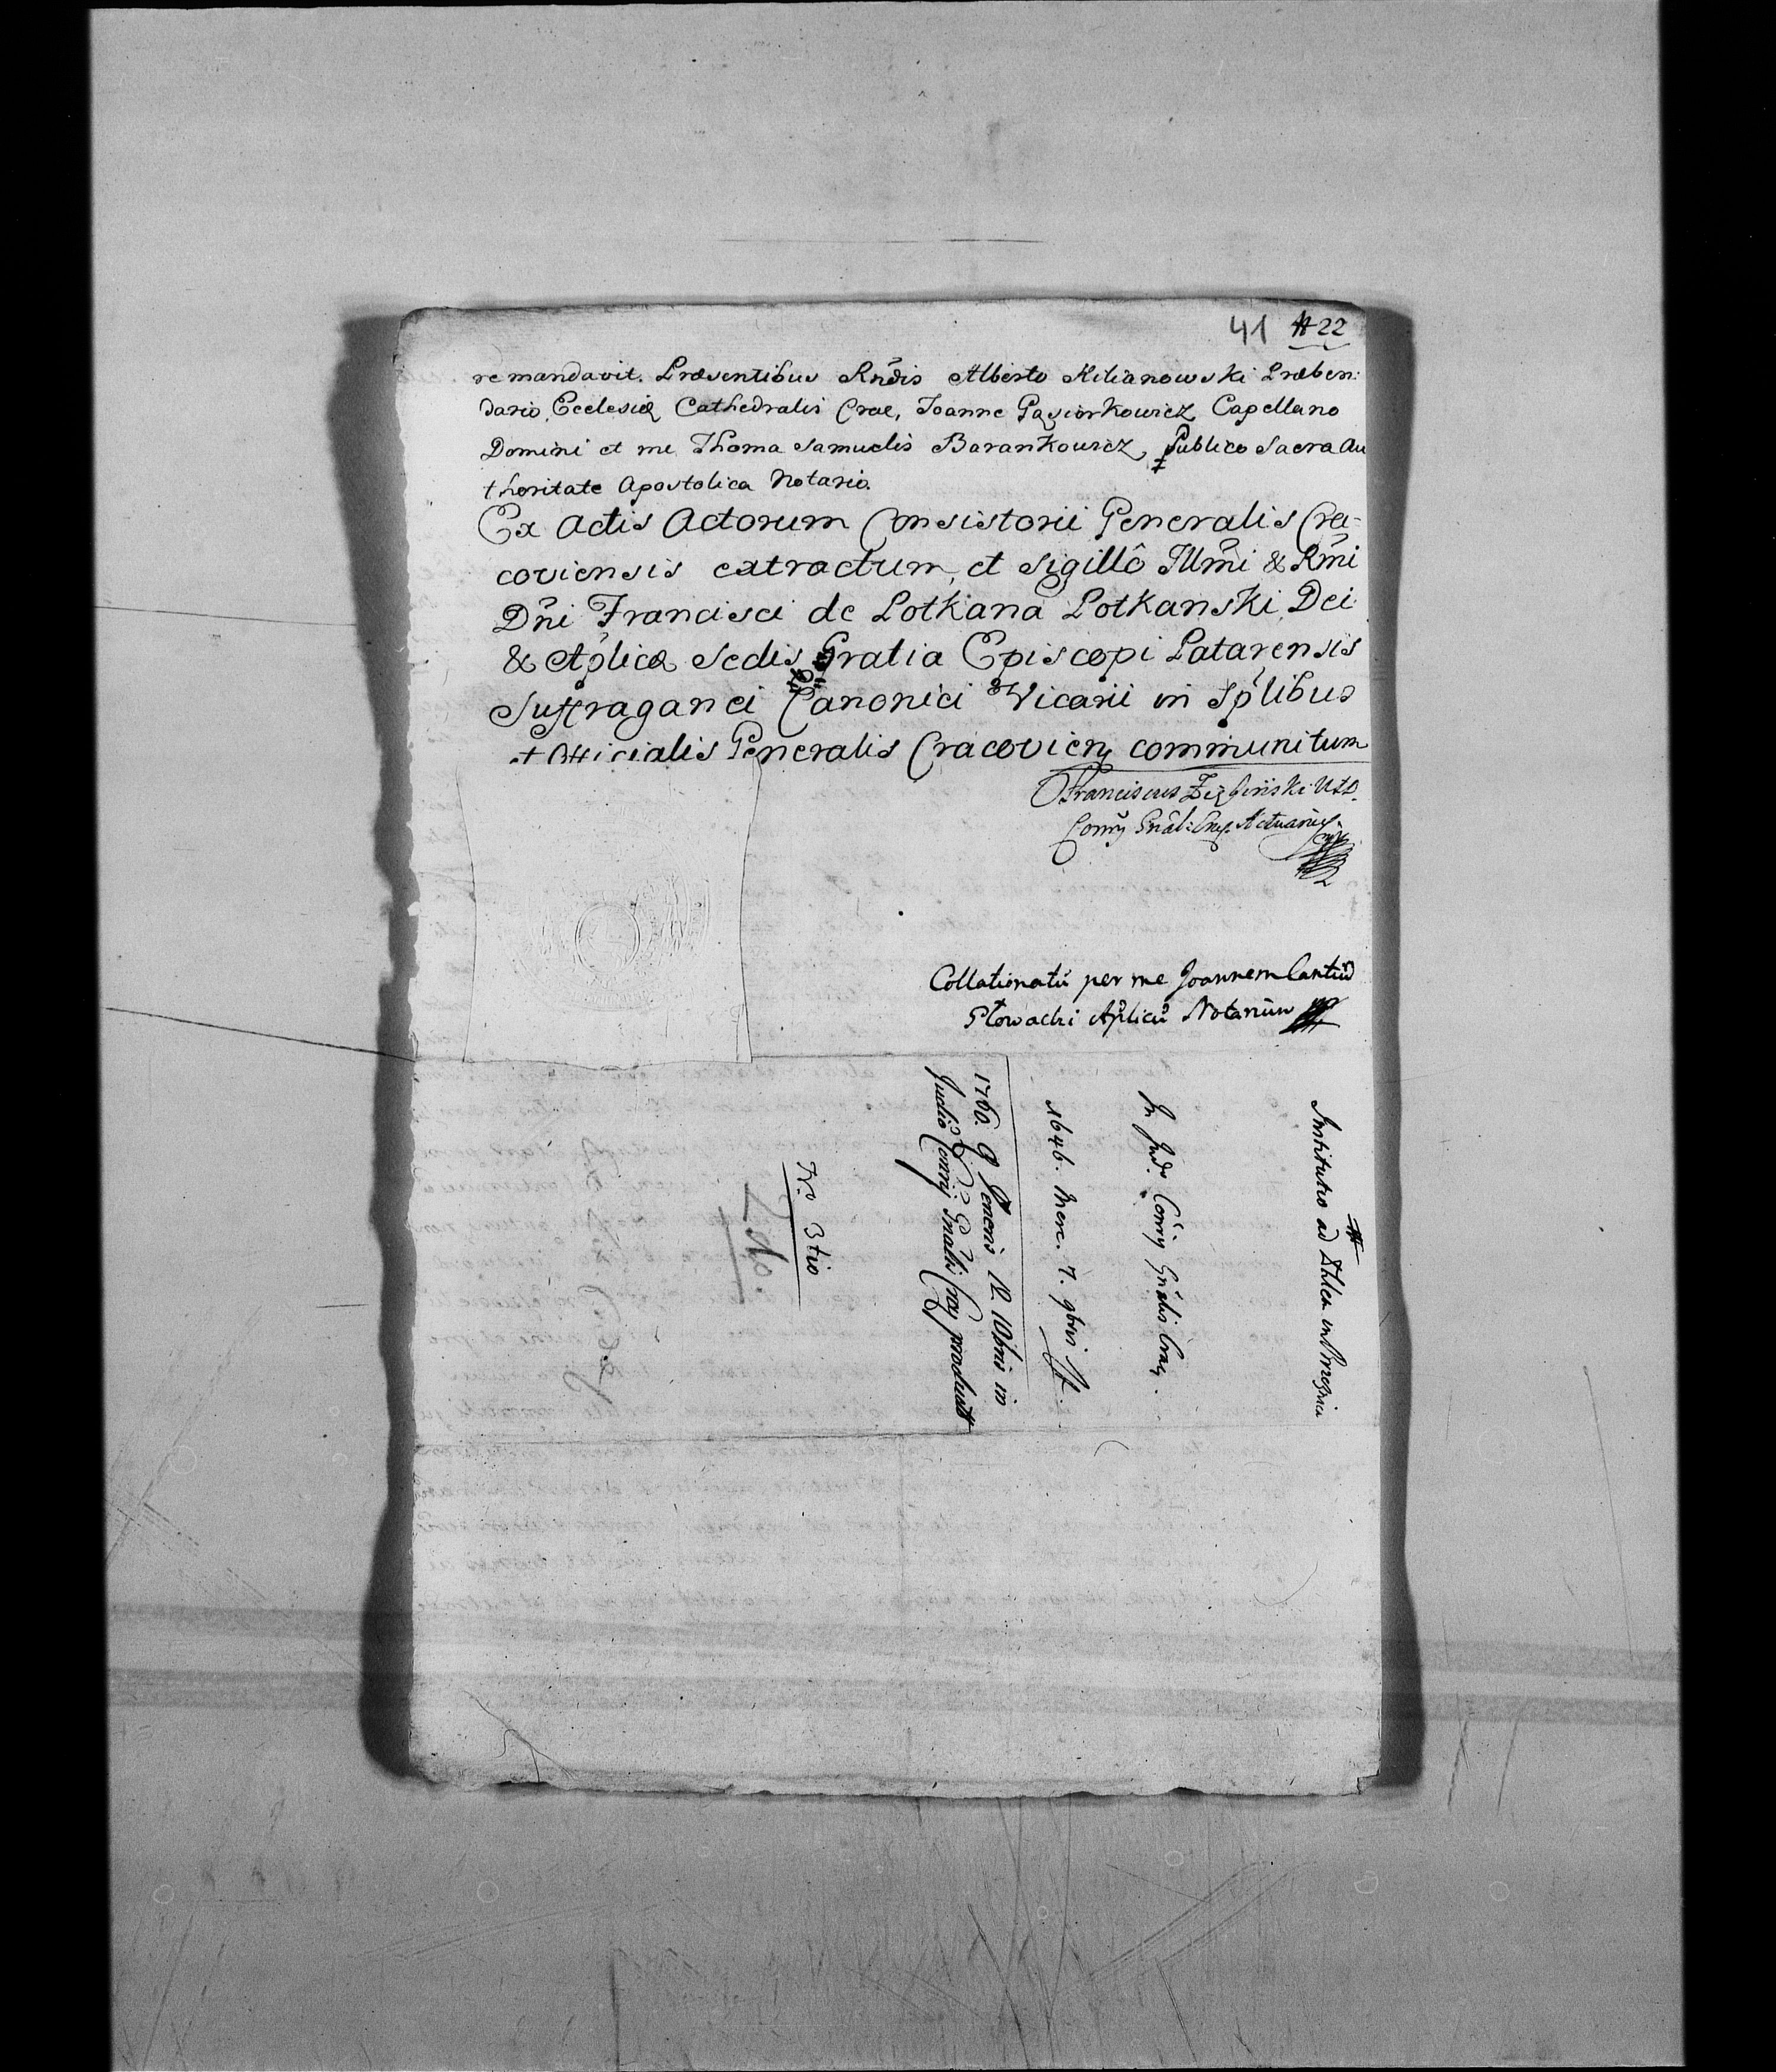 41 # 22
remandavit. Præsentibus Rndis Alberto Kilianowski Præben:
dario Ecclesiæ Cathedralis Crac, Joanne Gąsiorkowicz Capellano
Domini et me Thoma Samuelis Barankowicz, Publico Sacra Au
thoritate Apostolica Notario.
Ex Actis Actorum Consistorii Generalis Cra-
coviensis extractum, et Sigillô Illmi & Rmi
Dni Francisci de Potkana Potkanski Dei
& Aplicæ Sedis Gratia Episcopi Patarensis
Suffraganei Canonici Vicarii in Splibus
et Officialis Generalis Cracovien communitum
Franciscus
Actuarius
Collationatū per me Joannem Cantiū
Głowacki Aplicū Notarium
Institutio ad in Brzeznica
In Jud. Conrij Gnalis Crac.
1646. Merc. 7. 9bris
1760. Q Veneris 12 10bris in
Judio Conrij Gnalis Crac product
No 3tio